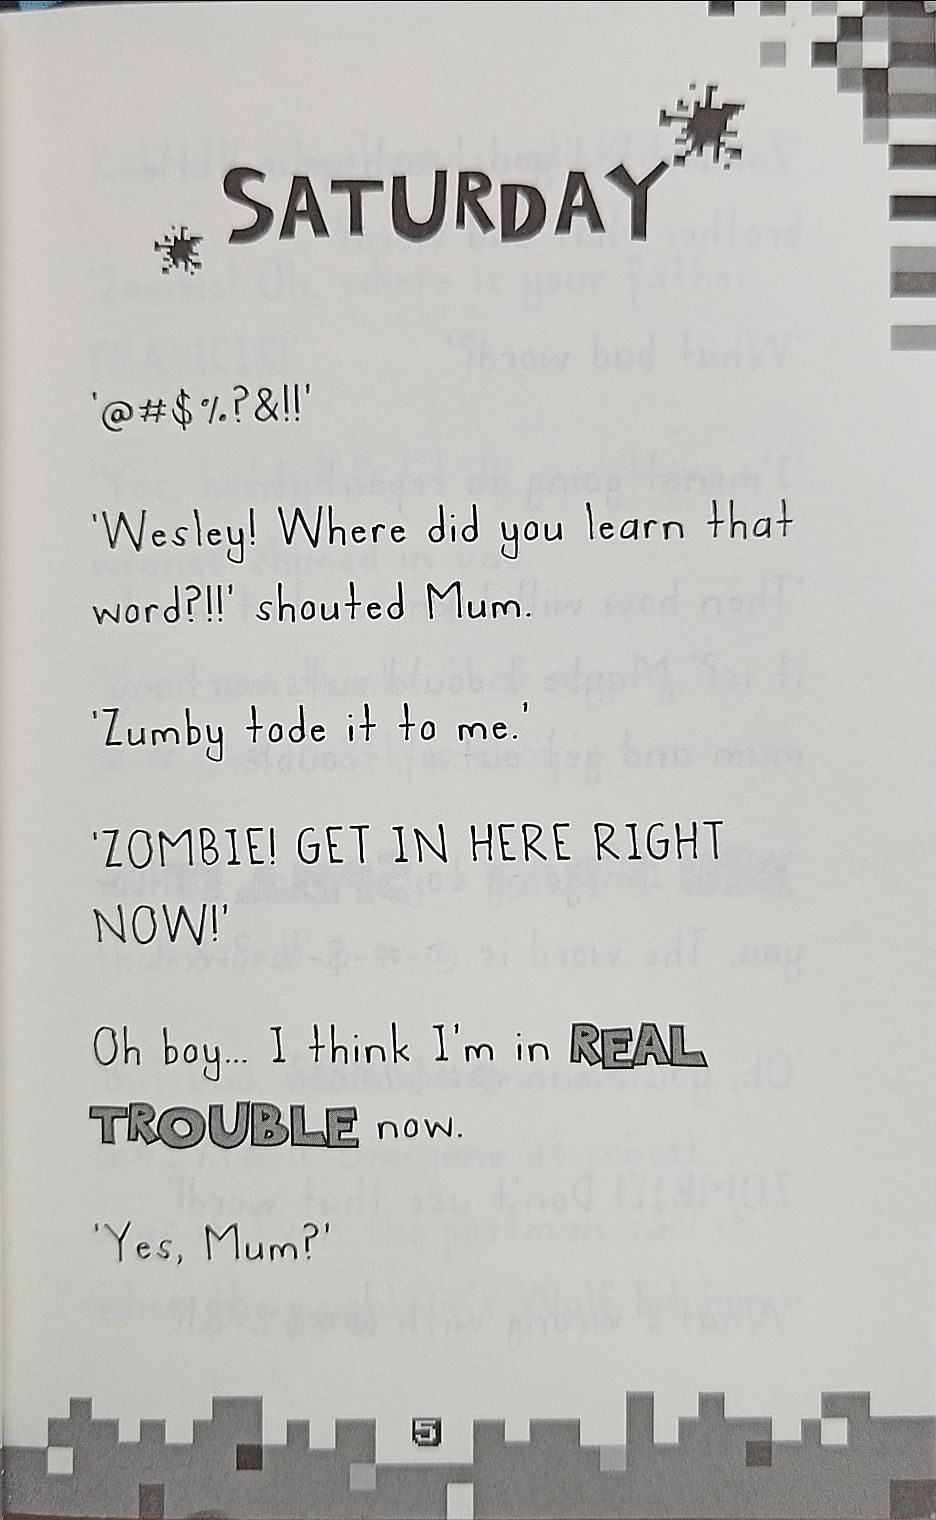 SATURDAY
'@#$%?&!!'
'Wesley! Where did you learn that
word?!!' shouted Mum.
'Zumby tode it to me.'
'ZOMBIE! GET IN HERE RIGHT
NOW!'
Oh boy... I think I'm in REAL
TROUBLE now.
'Yes, Mum?'
5